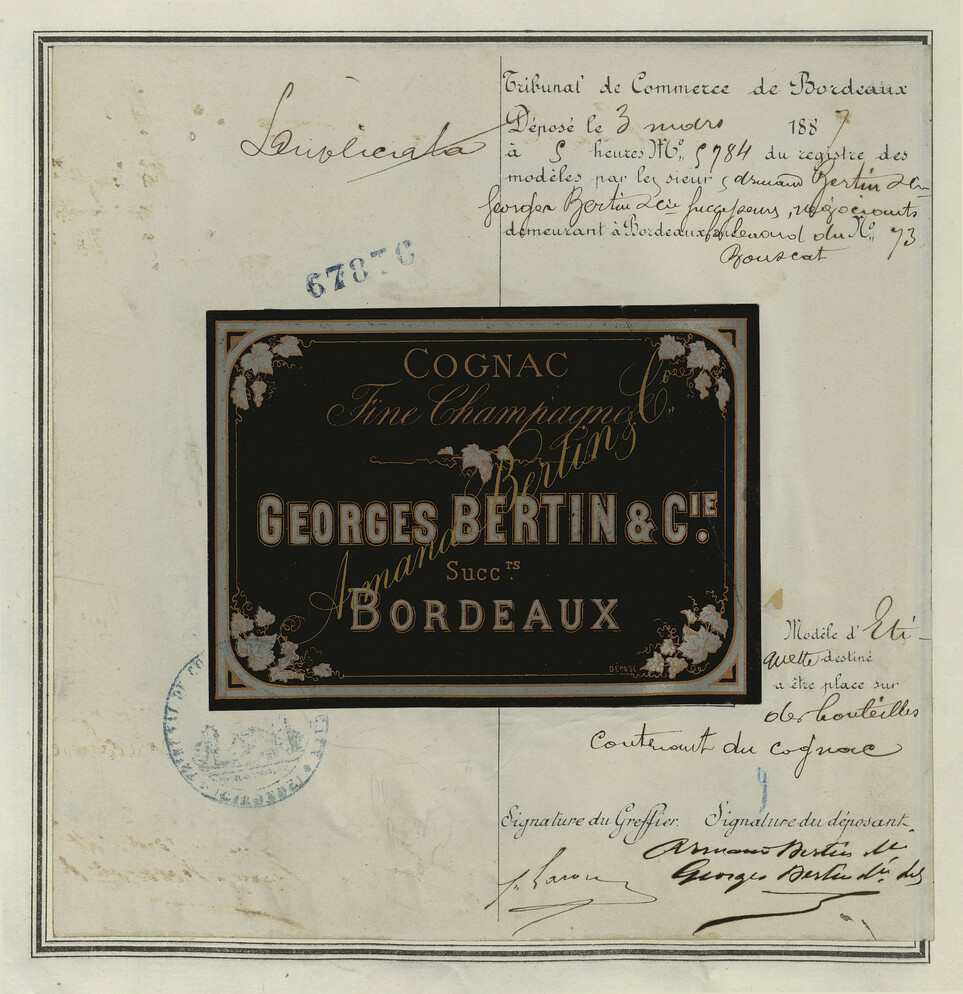 Tribunal de Commerce de Bordeaux
Déposé le 3 mars 1887
à 5 heures No. 5784 du registre des
modèles par les sieurs Armand Bertin & Cie
Georges Bertin & Cie Successeurs, négociants
demeurant à Bordeaux, boulevard du No. 73
Bouscat
67876
COGNAC
Fine Champagne
Armand Bertin & Co.
GEORGES BERTIN & CIE.
Succrs.
BORDEAUX
DÉPOSÉ
Modèle d'Eti-
quette destiné
a être place sur
des bouteilles
contenant du cognac
(GIRONDE)
Signature du Greffier. Signature du déposant.
Armand Bertin
Georges Bertin